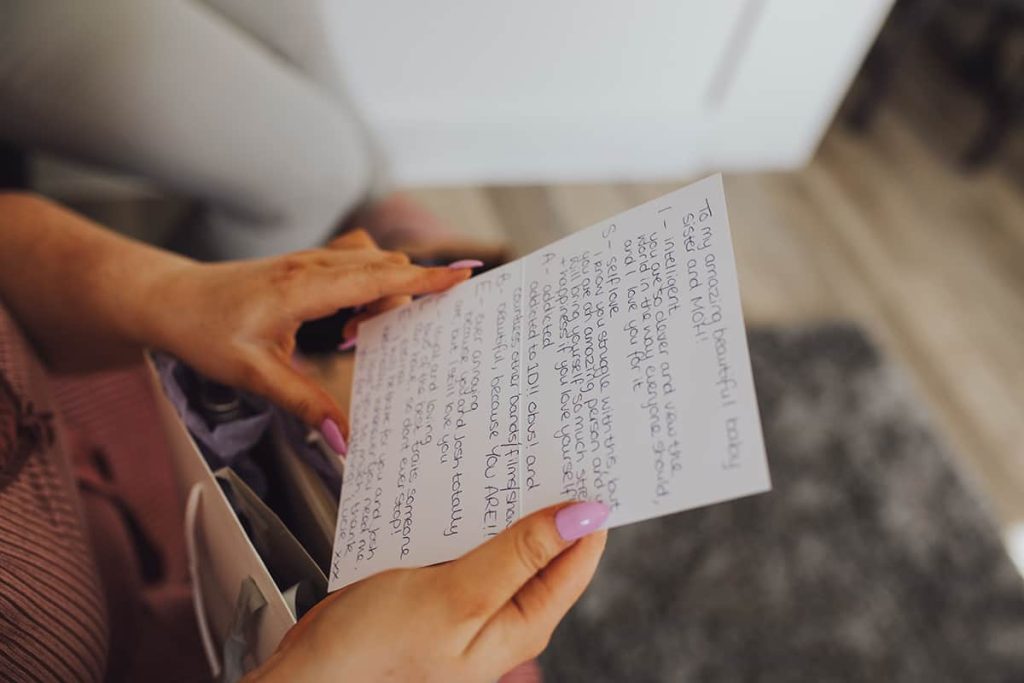 To my amazing beautiful baby
sister and MOH!
I - intelligent
you are so clever and view the
world in the way everyone should,
and I love you for it
S - self love
I know you struggle with this, but
you are an amazing person and
will bring yourself so much
+ happiness if you love yourself
A - addicted
addicted to 1D!! obvs! and
countless other bands/films/show
B - beautiful, because YOU ARE!!
E - ever annoying
because you and Josh totally
are but I still love you
loving
best traits someone
so dont ever stop!
brave for you and Josh
you need me,
thank
xxx